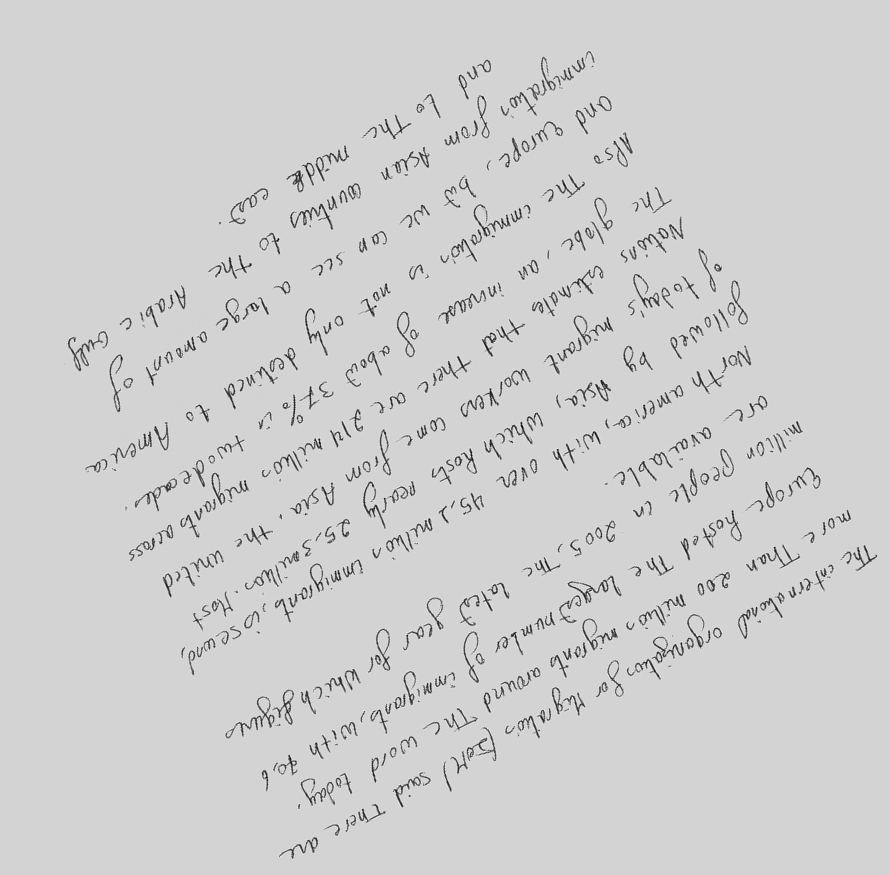 The international organization for Migration (IOM) said there are
more Than 200 million migrants around The word today.
Europe hosted The largest number of immigrants, with 70,6
million people in 2005, The latest year for which figures
are available.
North america, with over 45,1 million immigrants, is second,
followed by Asia, which hosts nearly 25,3 million. Most
of today's migrant workers come from Asia. the united
Nations estimate that there are 214 million migrants across
The globe, an increase of about 37% in two decades.
Also The immigration is not only destined to America
and Europe, but we can see a large amount of
immigration from Asian countries to the Arabic Gulf
and to The middle east.